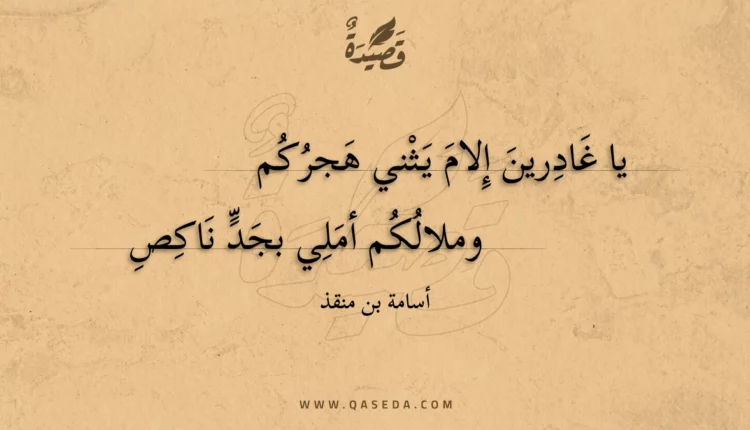 قَصِيدَةٌ
يا غَادِرينَ إِلامَ يَثْني هَجرُكُم
وملالُكُم أمَلِي بجَدٍّ نَاكِصِ
أسامة بن منقذ
WWW.QASEDA.COM